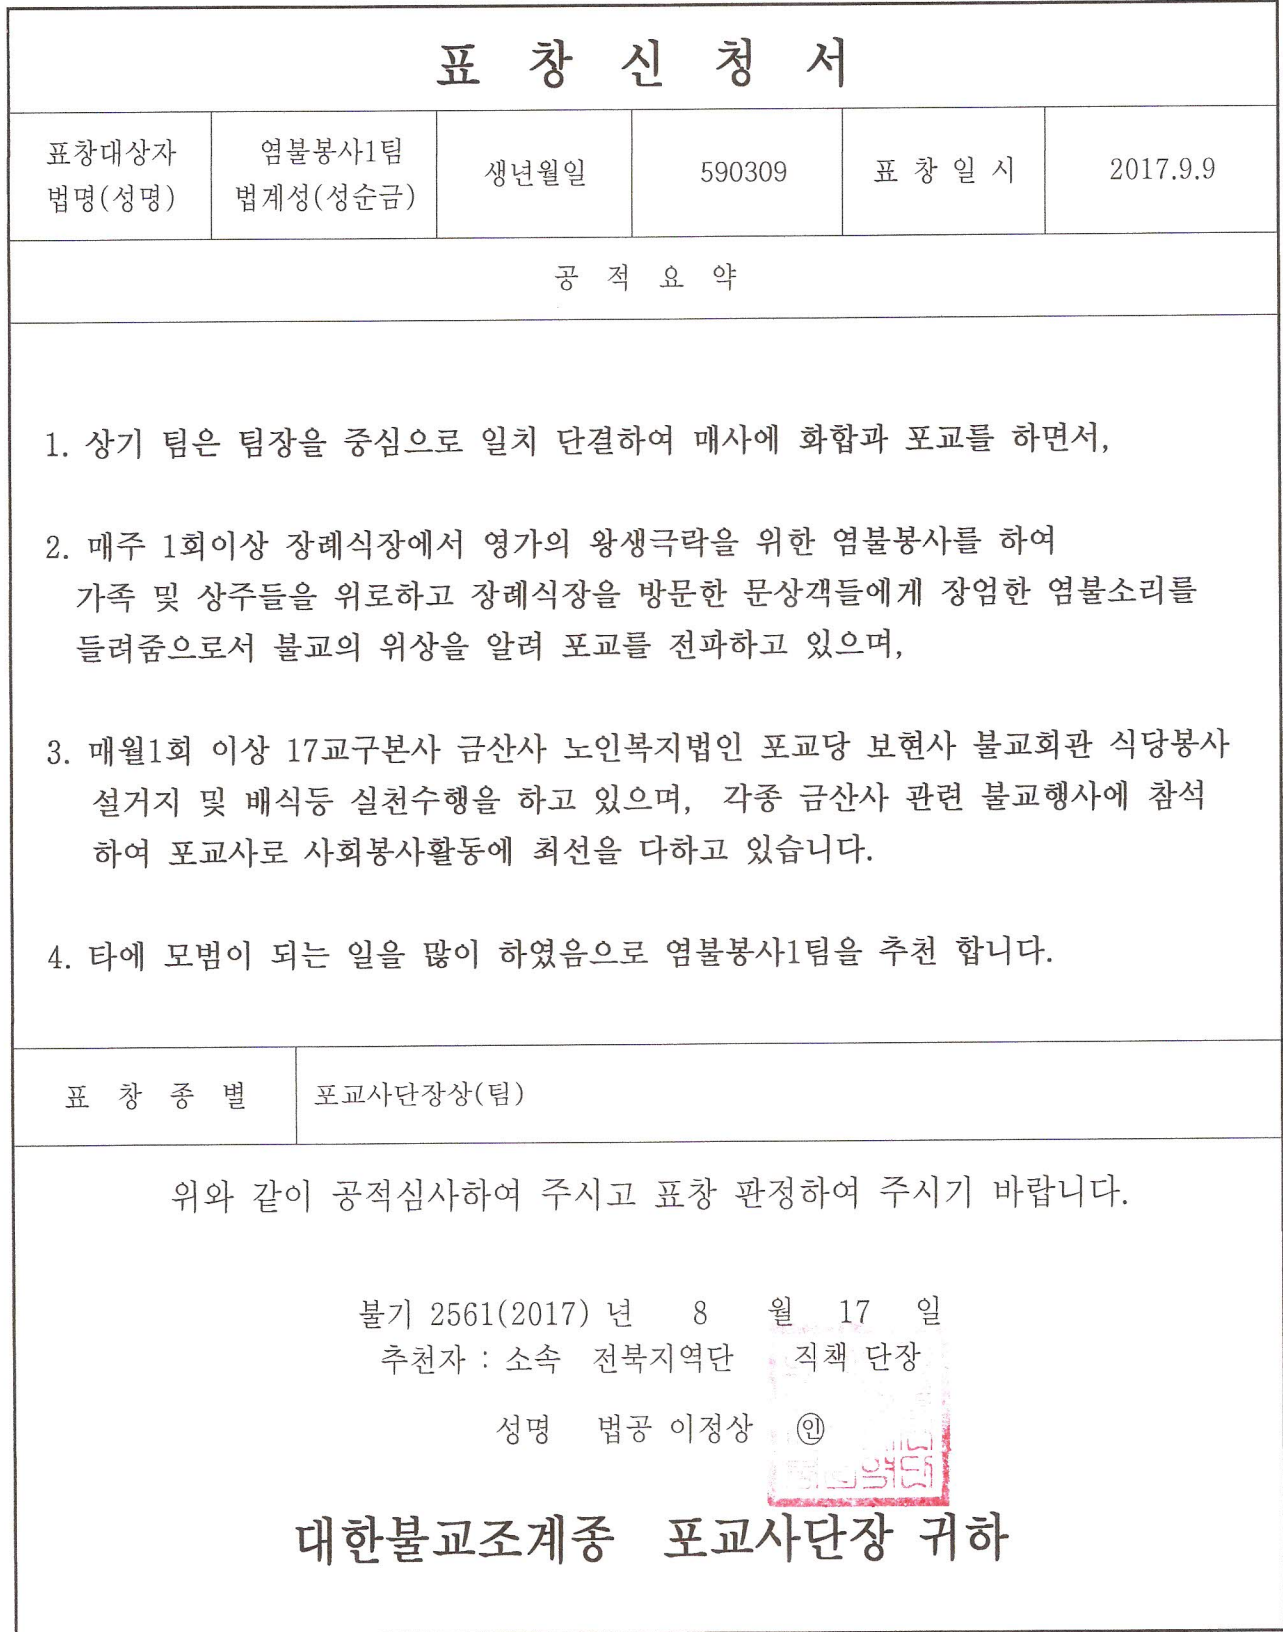 표 창 신 청 서
표창대상자
법명(성명)
염불봉사1팀
법계성(성순금)
생년월일
590309
표 창 일 시
2017.9.9
공 적 요 약
1. 상기 팀은 팀장을 중심으로 일치 단결하여 매사에 화합과 포교를 하면서,
2. 매주 1회이상 장례식장에서 영가의 왕생극락을 위한 염불봉사를 하여
가족 및 상주들을 위로하고 장례식장을 방문한 문상객들에게 장엄한 염불소리를
들려줌으로서 불교의 위상을 알려 포교를 전파하고 있으며,
3. 매월1회 이상 17교구본사 금산사 노인복지법인 포교당 보현사 불교회관 식당봉사
설거지 및 배식등 실천수행을 하고 있으며, 각종 금산사 관련 불교행사에 참석
하여 포교사로 사회봉사활동에 최선을 다하고 있습니다.
4. 타에 모범이 되는 일을 많이 하였음으로 염불봉사1팀을 추천 합니다.
표 창 종 별
포교사단장상(팀)
위와 같이 공적심사하여 주시고 표창 판정하여 주시기 바랍니다.
불기 2561(2017) 년 8 월 17 일
추천자 : 소속 전북지역단 직책 단장
성명 법공 이정상 ㉑
대한불교조계종 포교사단장 귀하